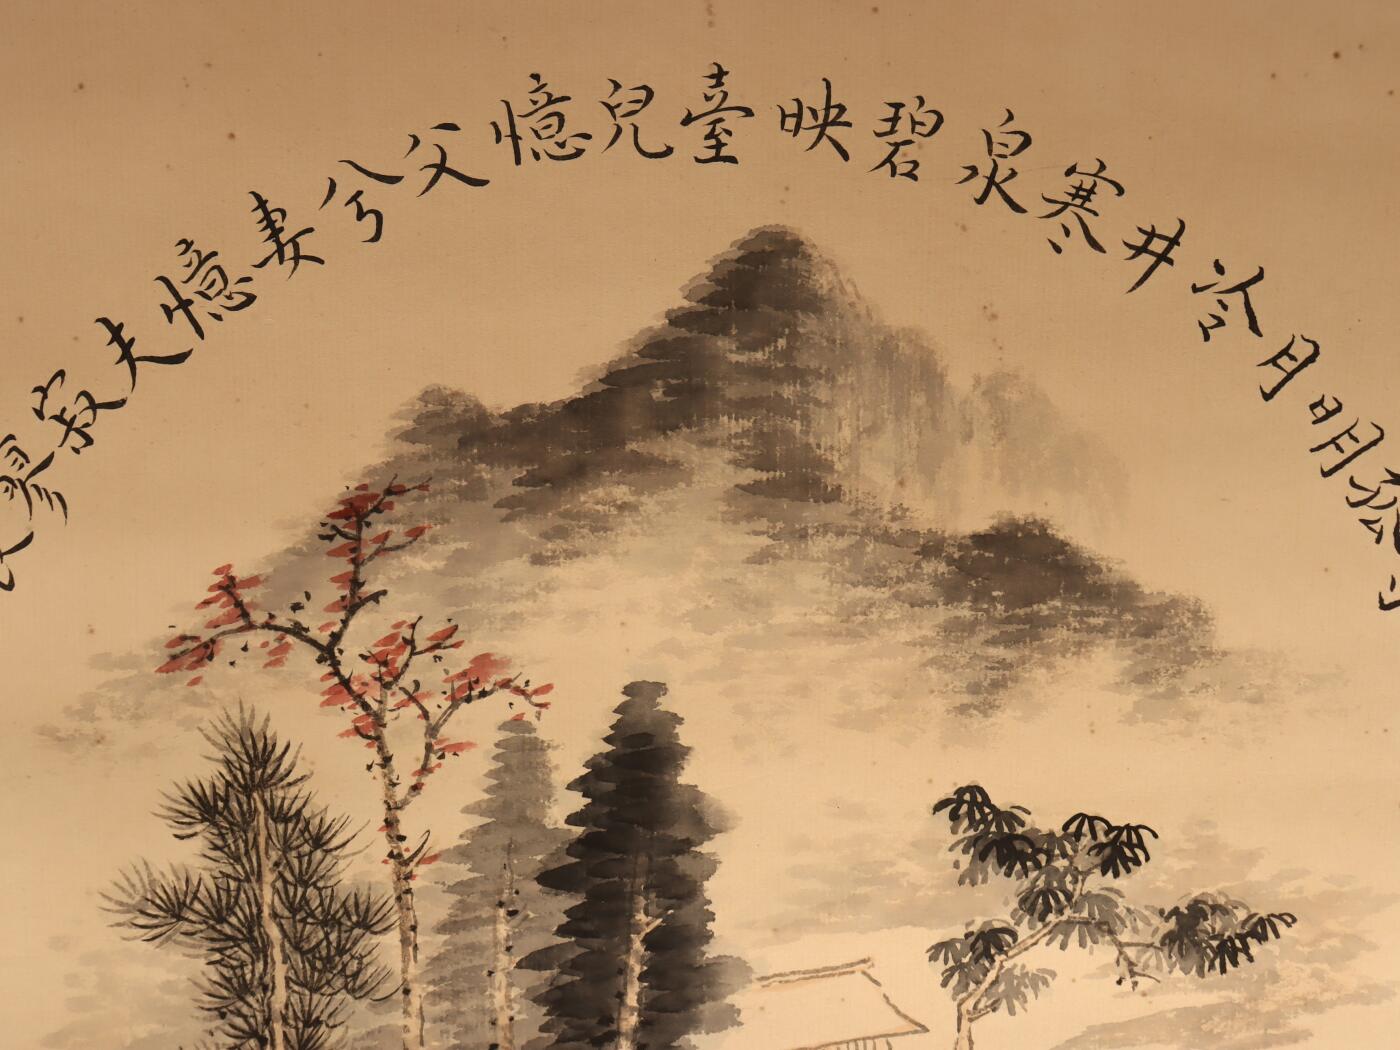 寥寂夫憶妻兮父憶兒臺映碧泉寒井冷月明孤